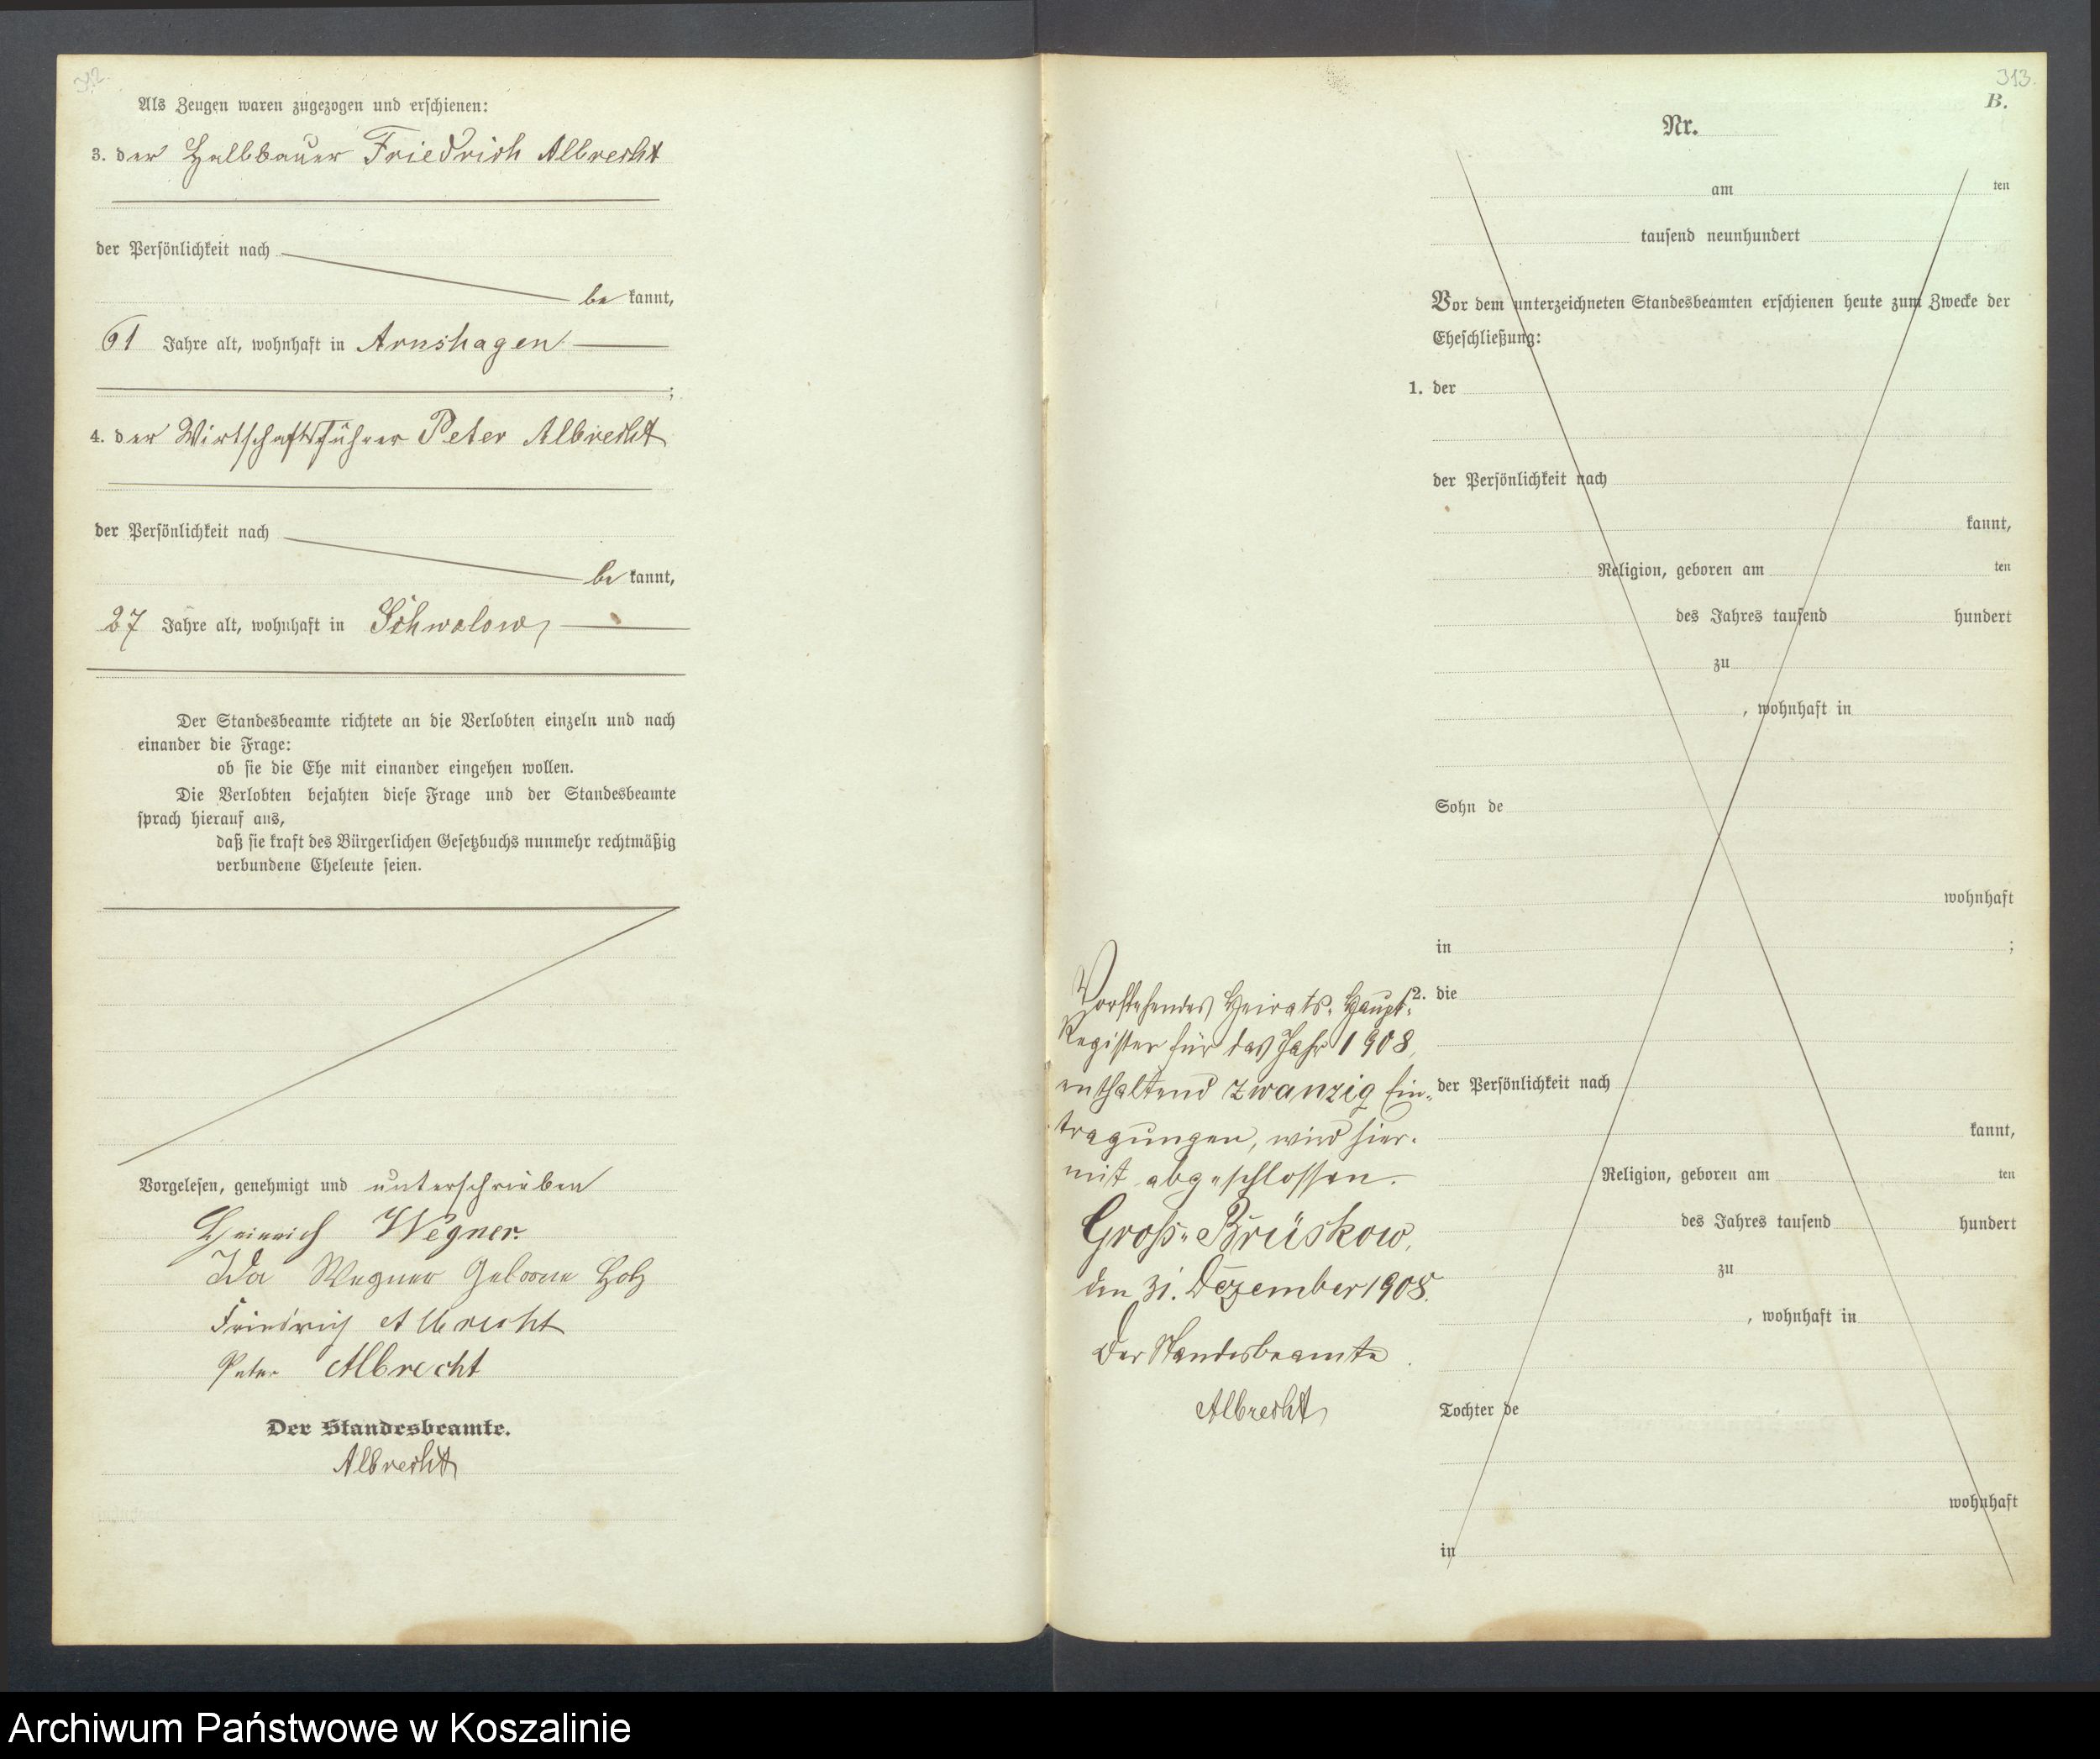 312.
Als Zeugen waren zugezogen und erschienen:
3. der Halbbauer Friedrich Albrecht
der Persönlichkeit nach
be kannt,
61 Jahre alt, wohnhaft in Arnshagen
;
4. der Wirtschaftsführer Peter Albrecht
der Persönlichkeit nach
be kannt,
27 Jahre alt, wohnhaft in Schwolow,
Der Standesbeamte richtete an die Verlobten einzeln und nach
einander die Frage:
ob sie die Ehe mit einander eingehen wollen.
Die Verlobten bejahten diese Frage und der Standesbeamte
sprach hierauf aus,
daß sie kraft des Bürgerlichen Gesetzbuchs nunmehr rechtmäßig
verbundene Eheleute seien.
Vorgelesen, genehmigt und unterschrieben
Heinrich Wegner.
Ida Wegner Geborne Holz
Friedrich Albrecht
Peter Albrecht
Der Standesbeamte.
Albrecht
313.
B.
Nr.
am ten
tausend neunhundert
Vor dem unterzeichneten Standesbeamten erschienen heute zum Zwecke der
Eheschließung:
1. der
der Persönlichkeit nach
kannt,
Religion, geboren am ten
des Jahres tausend hundert
zu
, wohnhaft in
Sohn de
wohnhaft
in ;
2. die
der Persönlichkeit nach
kannt,
Religion, geboren am ten
des Jahres tausend hundert
zu
, wohnhaft in
Tochter de
wohnhaft
in
Vorstehendes Heirats-Haupt-
Register für das Jahr 1908,
enthaltend zwanzig Ein-
tragungen, wird hier-
mit abgeschlossen.
Groß-Brüskow,
den 31. Dezember 1908.
Der Standesbeamte
Albrecht
Archiwum Państwowe w Koszalinie